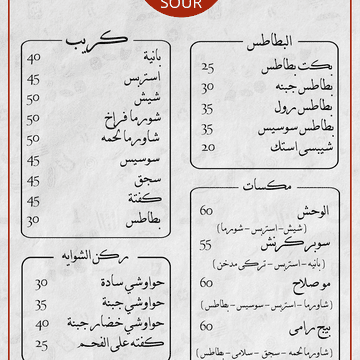 SOUR
البطاطس
بكت بطاطس 25
بطاطس جبنه 30
بطاطس رول 35
بطاطس سوسيس 35
شيبسى استك 20
مكسات
الوحش 60
(شيش - استربس - شورما)
سوبر كرنش 55
(بانيه - استربس - تركى مدخن)
مو صلاح 60
(شاورما - استربس - سوسيس - بطاطس)
بيج رامى 60
(شاورما لحمه - سجق - سلامى - بطاطس)
كريب
بانية 40
استربس 45
شيش 50
شورما فراخ 50
شاورما لحمه 50
سوسيس 45
سجق 45
كفتة 45
بطاطس 30
ركن الشوايه
حواوشي سادة 30
حواوشي جبنة 35
حواوشي خضار جبنة 40
كفته على الفحم 25